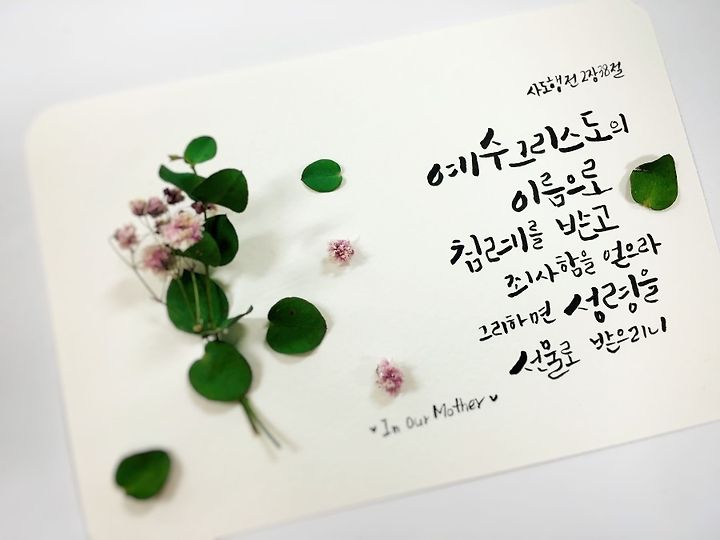 사도행전 2장38절
예수그리스도의
이름으로
침례를 받고
죄사함을 얻으라
그리하면 성령을
선물로 받으리니
♥In Our Mother♥